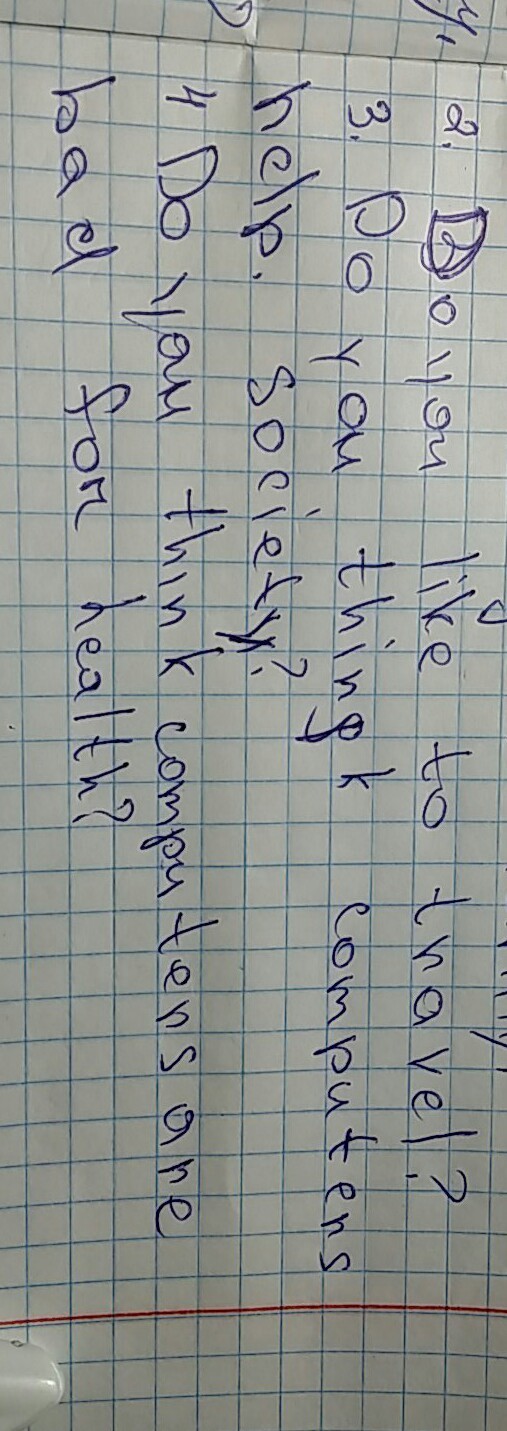 2. Do you like to travel?
3. Do you thingk computers
help. society?
4 Do you think computers are
bad for health?